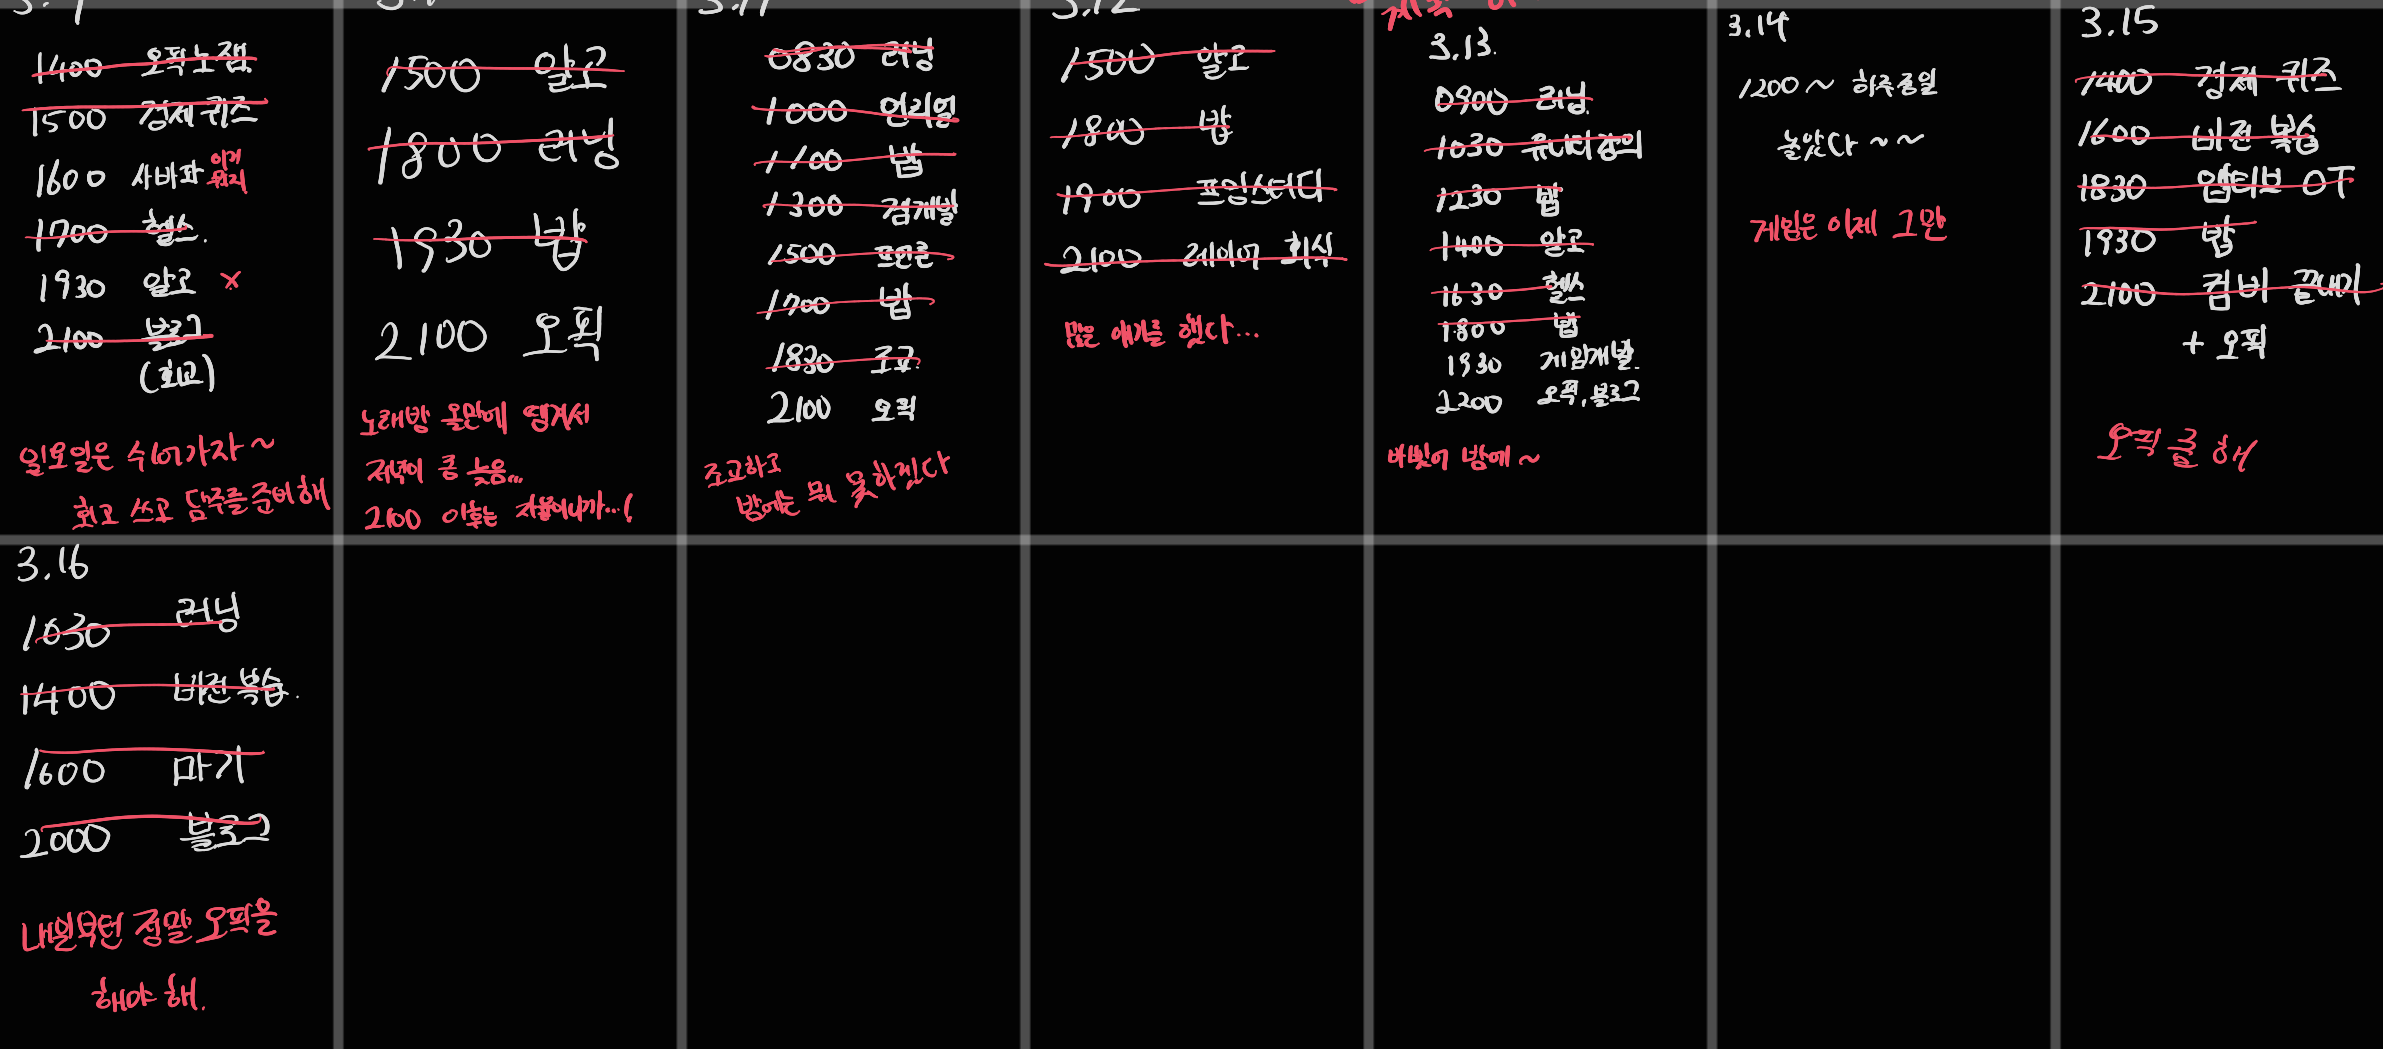 3.9
1400 오픽노잼
1500 경제퀴즈
1600 사바파 이거 뭐지
1700 헬스.
1930 알고 x
2100 블로그
(회고)
일요일은 쉬어가자~
회고 쓰고 담주를 준비해
1500 알고
1800 러닝
1930 밥
2100 오픽
노래방 올만에 땡겨서
저녁이 좀 늦음...
2100 이후는 자율이니까...!
3.11
0830 러닝
1000 언리얼
1100 밥
1300 겜개발
1500
1700 밥
1830 조교
2100 오픽
조교하고
밤에는 뭐 못하겠다
3.12
1500 알고
1800 밥
1900 프밍스터디
2100 레이어 회식
많은 얘기를 했다...
3.13.
0900 러닝
1030 유니티강의
1230 밥
1400 알고
1630 헬스
1800 밥
1930 게임개발.
2200 오픽, 블로그
바빴어 밤에~
3.14
1200~ 하루종일
놀았다~~
게임은 이제 그만
3.15
1400 경제 퀴즈
1600 비전 복습
1830 액티브 OT
1930 밥
2100 컴비 끝내기
+ 오픽
오픽 를 해
3.16
1030 러닝
1400 비전복습.
1600 마기
2000 블로그
내일부턴 정말 오픽을
해야 해.